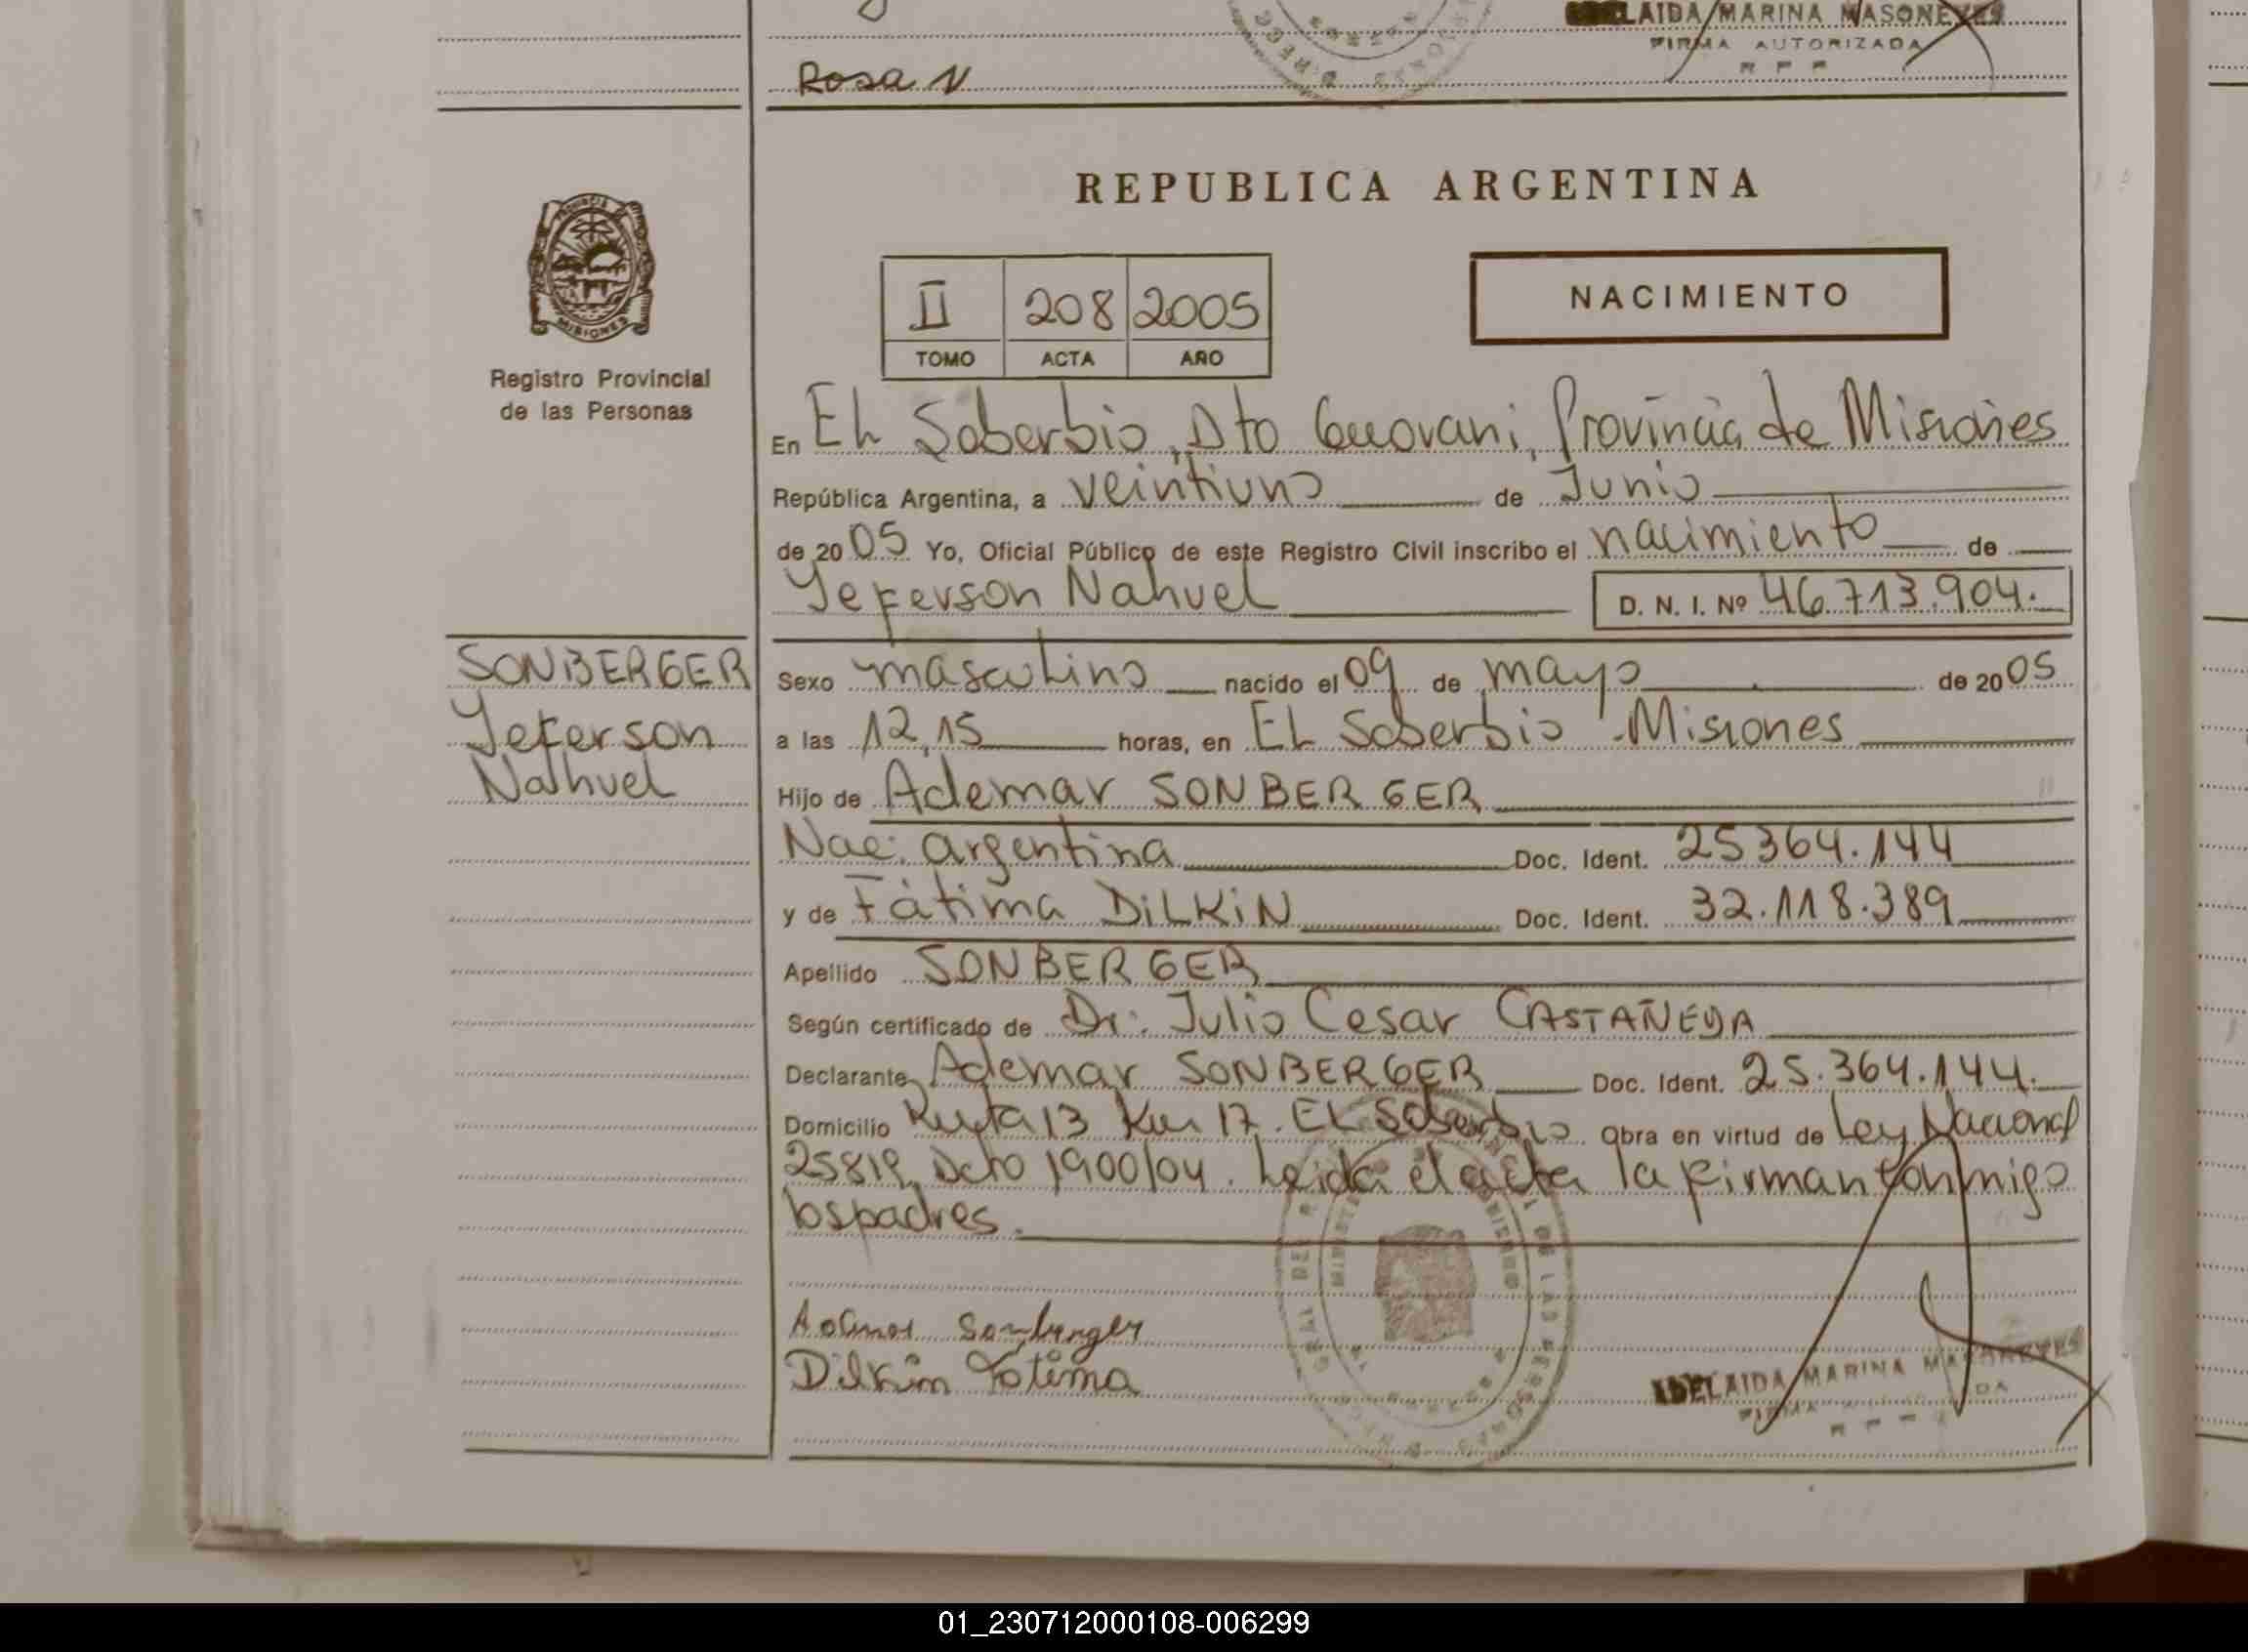 ELAIDA MARINA MASONEVES
FIRMA AUTORIZADA
R P P
Rosa N
REPUBLICA ARGENTINA
PROVINCIA DE
MISIONES
Registro Provincial
de las Personas
II 208 2005
TOMO ACTA AÑO
NACIMIENTO
En El Soberbio, Dto Guarani, Provincia de Misiones
República Argentina, a veintiuno de Junio
de 2005 Yo, Oficial Público de este Registro Civil inscribo el nacimiento de
Yeferson Nahuel D. N. I. Nº 46.713.904.
SONBERGER
Yeferson
Nahuel
Sexo masculino nacido el 09 de mayo de 2005
a las 12,15 horas, en El Soberbio - Misiones
Hijo de Ademar SONBERGER
Nac. argentina Doc. Ident. 25364.144
y de Fàtima DiLKiN Doc. Ident. 32.118.389
Apellido SONBERGER
Según certificado de Dr. Julio Cesar CASTAÑEDA
Declarante Ademar SONBERGER Doc. Ident. 25.364.144.
Domicilio Ruta 13 Km 17. El Soberbio Obra en virtud de Ley Nacional
25819, Dcto 1900/04. Leida el acta la firman conmigo
los padres.
Sonberger
Dilkin Fátima
ADELAIDA MARINA MASONEVES
FIRMA
R P P
01_230712000108-006299